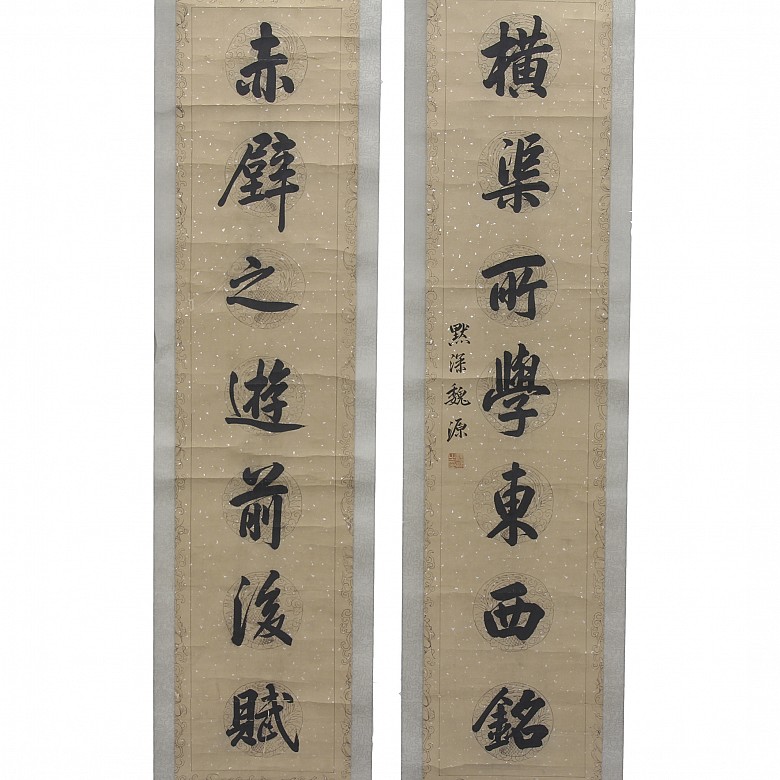 橫渠所學東西銘
默深魏源
赤壁之遊前後賦